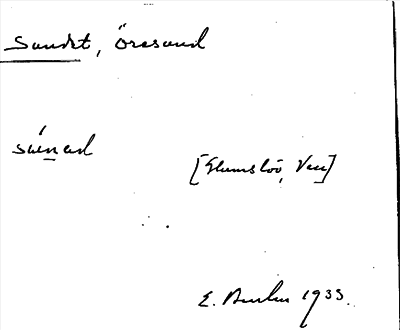 Sundet, Öresund
súned
[Glumslöv, Ven]
E. 1933.